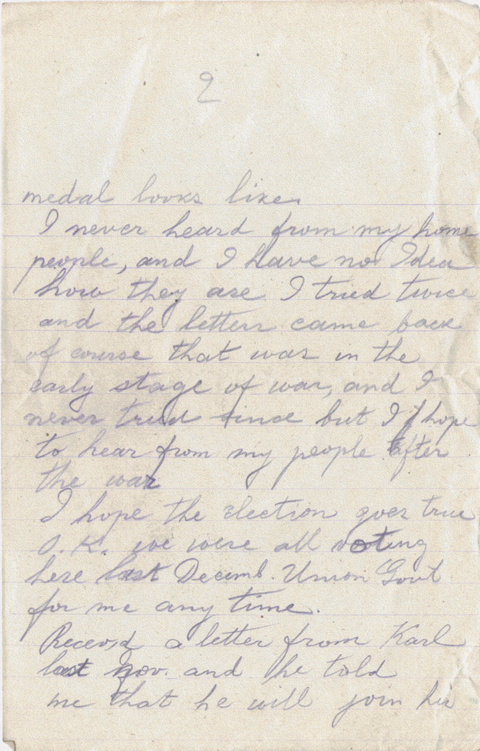 2
medal looks like.
I never heard from my home
people, and I have no Idea
how they are I tried twice
and the letters came back
of course that was in the
early stage of war, and I
never tried since but I hope
to hear from my people after
the war
I hope the Election goes true
O.K. we were all voting
here last Decemb. Union Govt.
for me any time.
Receivd a letter from Karl
last Nov. and he told
me that he will join his